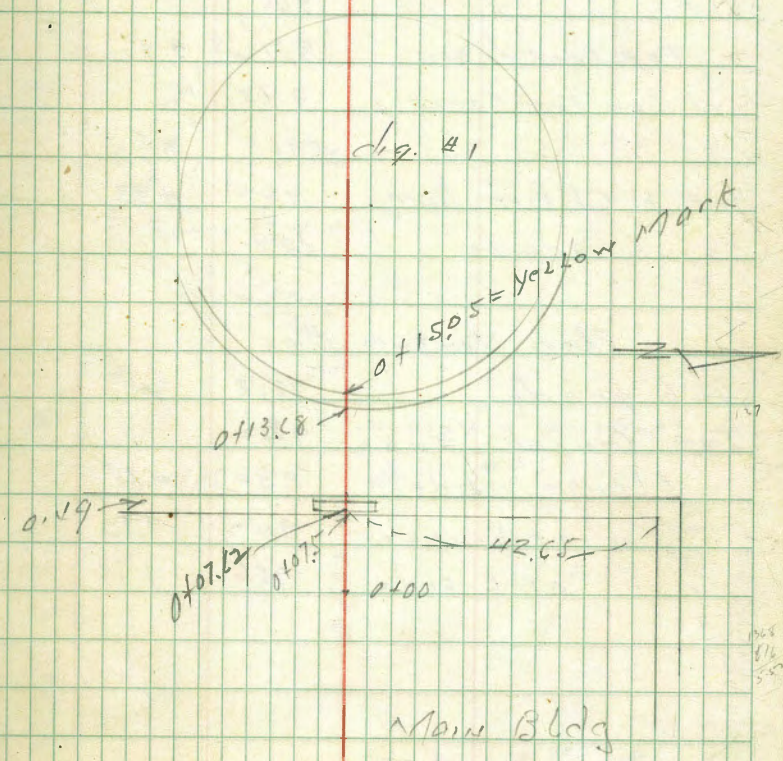 dig. #1
0+15.05 = Yellow Mark
0+13.68
0.49
0+07.62
0+07.5
42.65
0+00
N
Main Bldg
1368